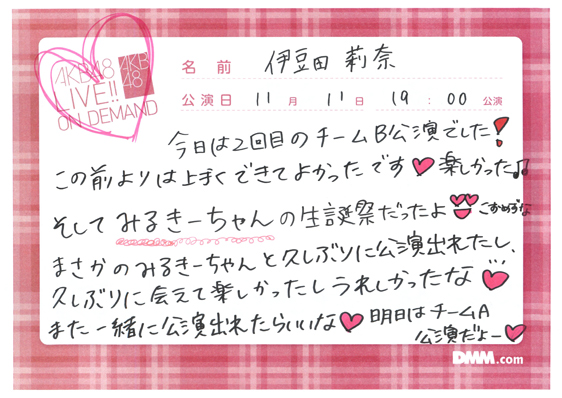 AKB48
LIVE!!
ON DEMAND
AKB
48
名前 伊豆田 莉奈
公演日 11月 11日 19:00 公演
今日は2回目のチームB公演でした!
この前よりは上手くできてよかったです♥楽しかった♫
そしてみるきーちゃんの生誕祭だったよ
まさかのみるきーちゃんと久しぶりに公演出れたし、
久しぶりに会えて楽しかったしうれしかったな♥
また一緒に公演出れたらいいな♥明日はチームA
公演だよー♥
DMM.com